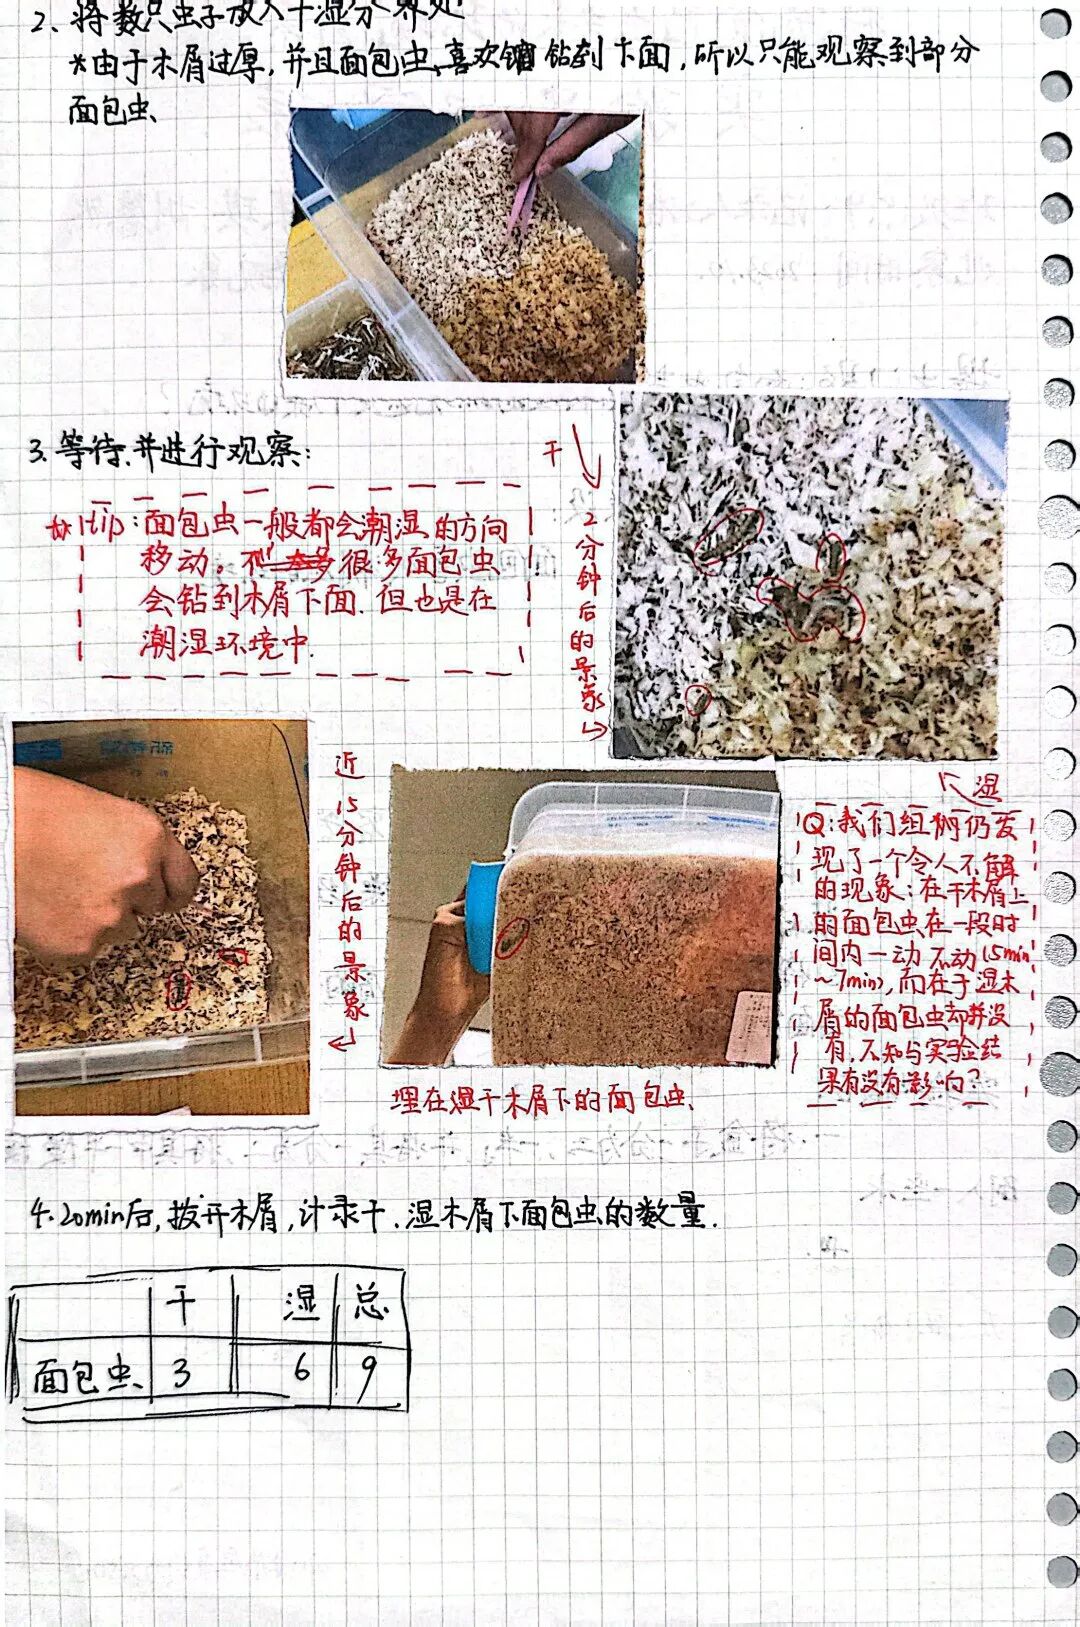 2、将数只虫子放入干湿分界处
*由于木屑过厚，并且面包虫喜欢钻到下面，所以只能观察到部分
面包虫
3、等待，并进行观察：
tip：面包虫一般都会潮湿的方向
移动。很多面包虫
会钻到木屑下面，但也是在
潮湿环境中.
干
2分钟后的景象
湿
近15分钟后的景象
埋在湿干木屑下的面包虫
Q：我们组仍发
现了一个令人不解
的现象：在干木屑上
的面包虫在一段时
间内一动不动(5min
~7min)，而在于湿木
屑的面包虫却并没
有，不知与实验结
果有没有影响？
4.20min后，拨开木屑，计录干、湿木屑下面包虫的数量.
干 湿 总
面包虫 3 6 9